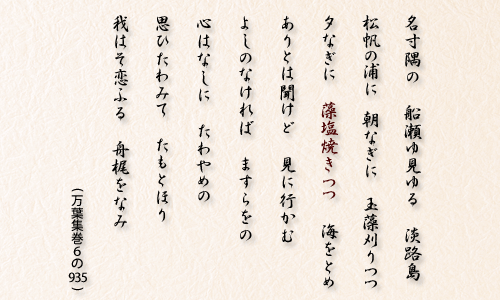 名寸隅の 船瀬ゆ見ゆる 淡路島
松帆の浦に 朝なぎに 玉藻刈りつつ
夕なぎに 藻塩焼きつつ 海をとめ
ありとは聞けど 見に行かむ
よしのなければ ますらをの
心はなしに たわやめの
思ひたわみて たもとほり
我はそ恋ふる 舟梶をなみ
（万葉集巻６の935）